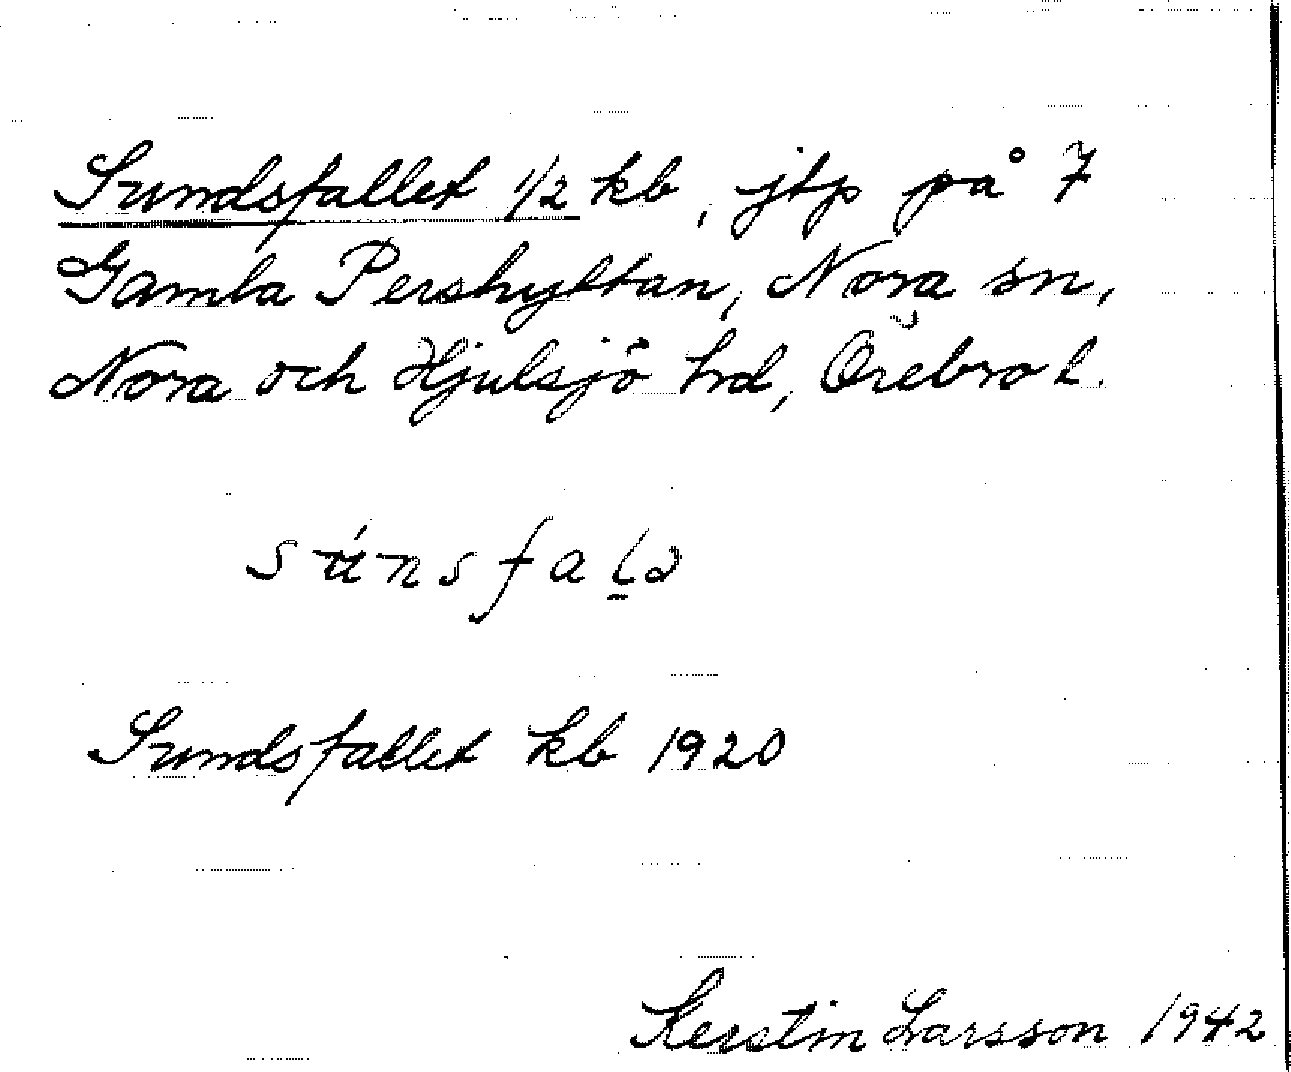 Sundsfallet 1/2 kb, jtp på 7
Gamla Pershyttan, Nora sn,
Nora och Hjulsjö hrd, Örebro l.
súnsfalə
Sundsfallet kb 1920
Kerstin Larsson 1942